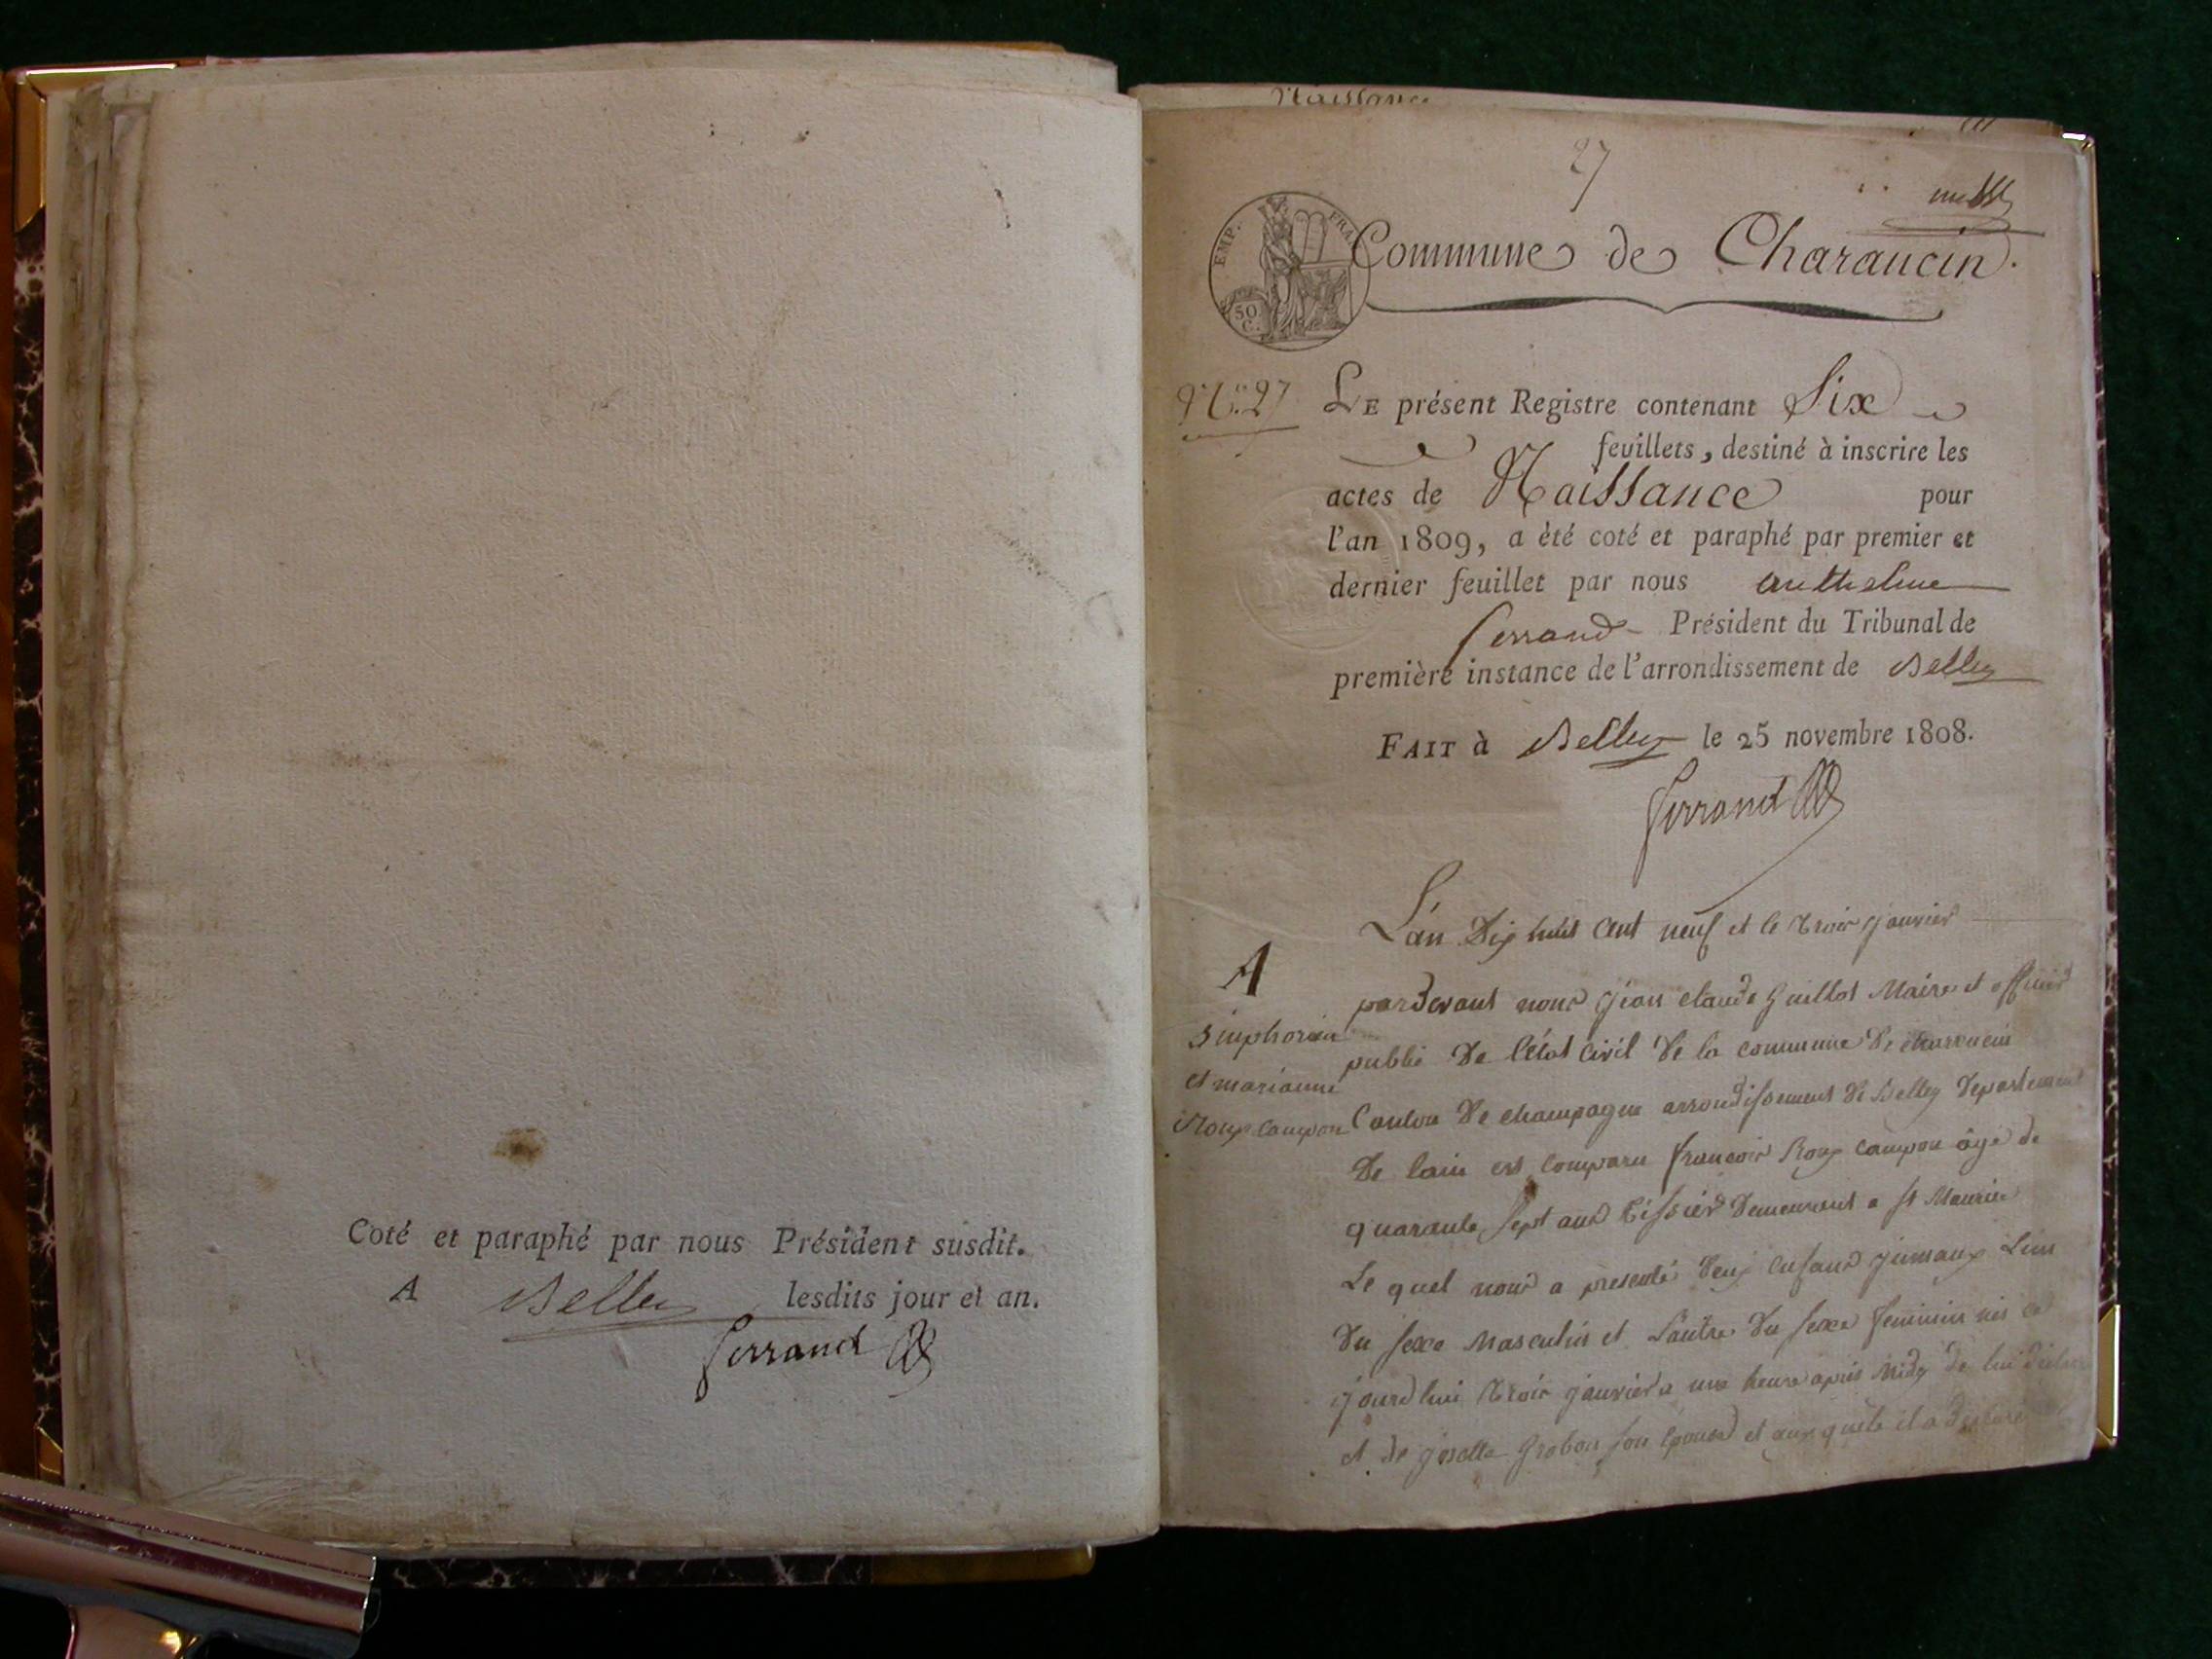 Coté et paraphé par nous Président susdit.
A Belley lesdits jour et an.
Ferrand
Naissance
27
EMP. FRA
50 C.
Commune de Charancin.
N.º 27
LE présent Registre contenant Six
feuillets, destiné à inscrire les
actes de Naissance pour
l'an 1809, a èté coté et paraphé par premier et
dernier feuillet par nous anthelme
ferrand Président du Tribunal de
première instance de l'arrondissement de Belley
FAIT à Belley le 25 novembre 1808.
ferrand
L'an Dix huit Cent neuf et le trois janvier
A
Simphorien
et marianne
Roux campon
pardevant nous jean claude Guillot Maire et officier
public De l'état Civil De la commune De charancin
Canton De champagne arrondissement De Belley Departement
De lain est comparu francois Roux campon âgé de
quarante sept ans Tissier Demeurant a st Maurice
Le quel nous a presenté Deux Enfans jumaux Lun
Du sexe Masculin et Lautre Du sexe feminin nés ce
jourdhui trois janvier a une heure apres Midy de lui
et de josette Grobon son épouse et auxquels il a